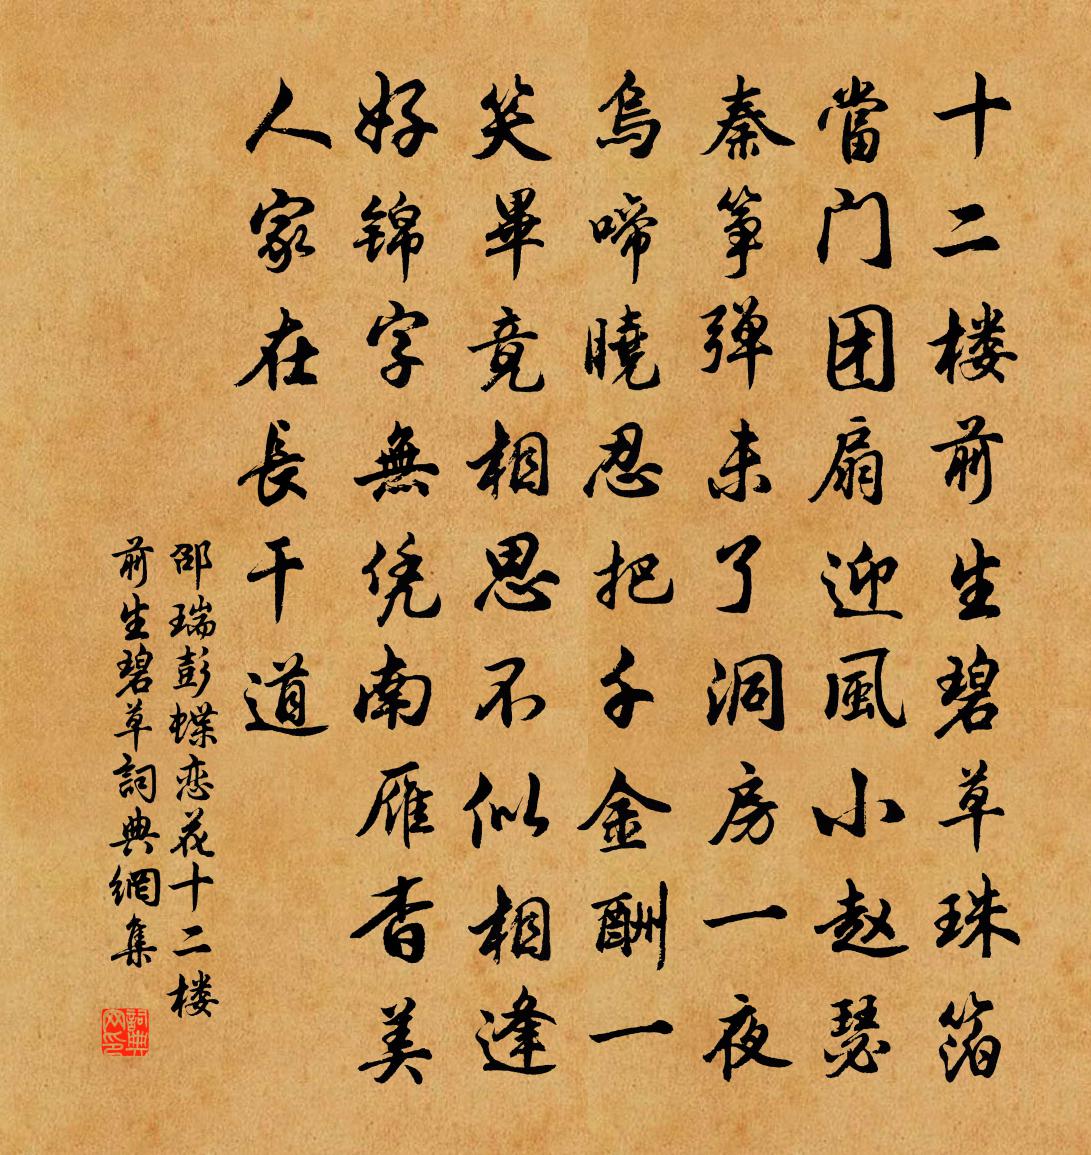 十二楼前生碧草珠箔
當门团扇迎風小赵瑟
秦筝弹未了洞房一夜
烏啼曉忍把千金酬一
笑畢竟相思不似相逢
好锦字無凭南雁杳美
人家在長干道
邵瑞彭蝶恋花十二楼
前生碧草詞典網集
詞典